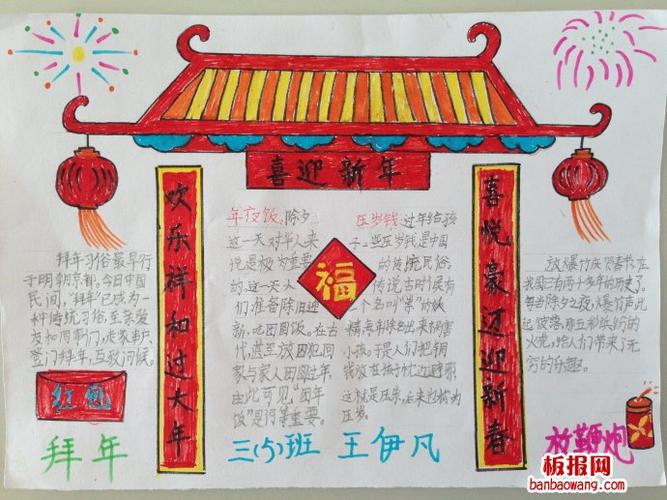 喜迎新年
欢乐祥和过大年
喜悦豪迈迎新春
福
拜年习俗最早行
于明朝京都。今日中国
民间，“拜年”已成为一
种传统习俗至亲爱
登门拜年，互敬问候。
红包
拜年
年夜饭：除夕
这一天对华人来
说是极为重要
的。这一天人
们准备除旧迎
新，吃团圆饭。在古
代，甚至被囚犯回
家与家人团圆过年，
由此可见“团年
饭”是何等重要。
压岁钱：过年给孩
子一些压岁钱是中国
的传统民俗。
传说古时候有
一个名叫“祟”的妖
小孩。于是人们把铜
压岁。
三(5)班 王伊凡
放爆竹庆贺春节在
我国已有两千多年的历史了。
每当除夕之夜，爆竹声此
起彼落，那五彩缤纷的
火光，给人们带来了无
穷的乐趣。
放鞭炮
板报网
banbaowang.com